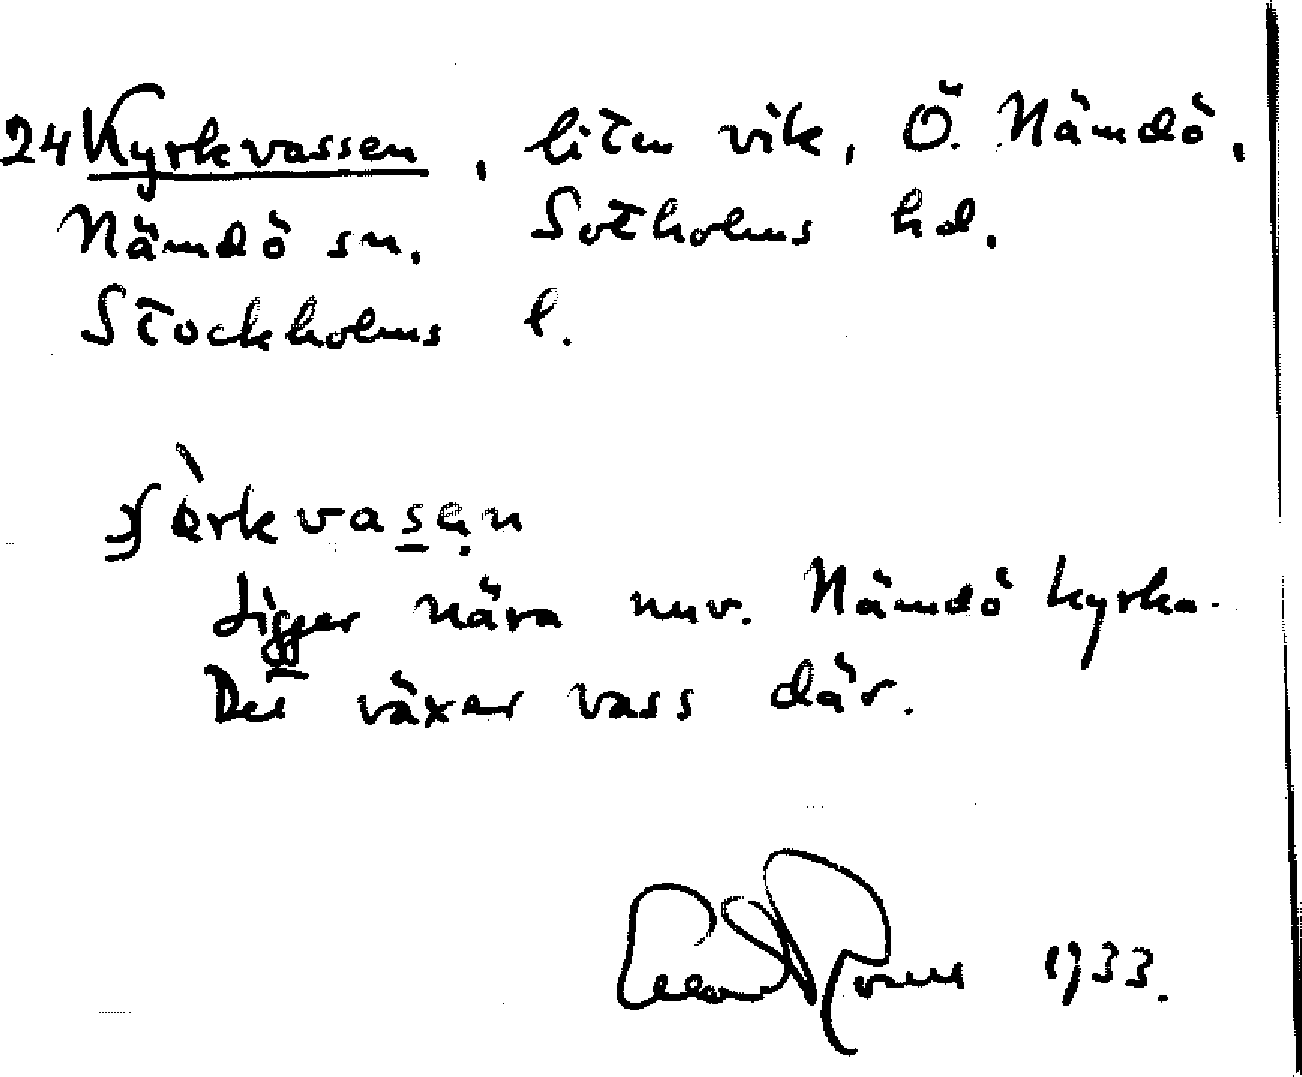 24 Kyrkvassen, liten vik, Ö. Nämdö,
Nämdö sn. Sotholms hd.
Stockholms l.
Ligger nära nuv. Nämdö kyrka.
Det växer vass där.
1933.